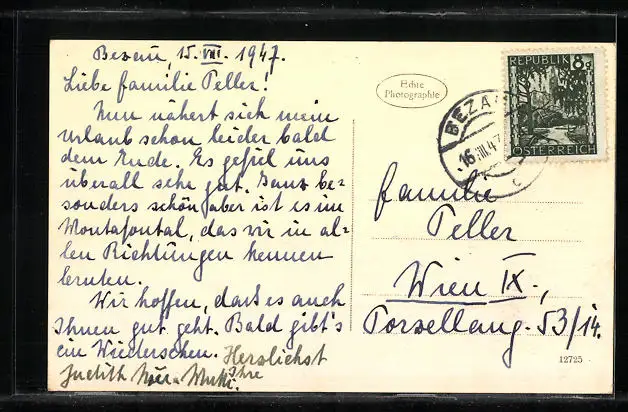 Bezau, 15. VIII. 1947.
Liebe familie Teller!
Nun nähert sich mein
Urlaub schon leider bald
dem Ende. Es gefiel uns
überall sehr gut. Ganz be=
sonders schön aber ist es im
Montafontal, das wir in al=
len Richtungen kennen
lernten.
Wir hoffen, dass es auch
Ihnen gut geht. Bald gibt's
ein Wiedersehen. Herzlichst
Ihre
Judith
Echte
Photographie
REPUBLIK 8g
ÖSTERREICH
BEZAU
16.
c
familie
Teller
Wien IX.,
Porzellang. 53/14.
12725